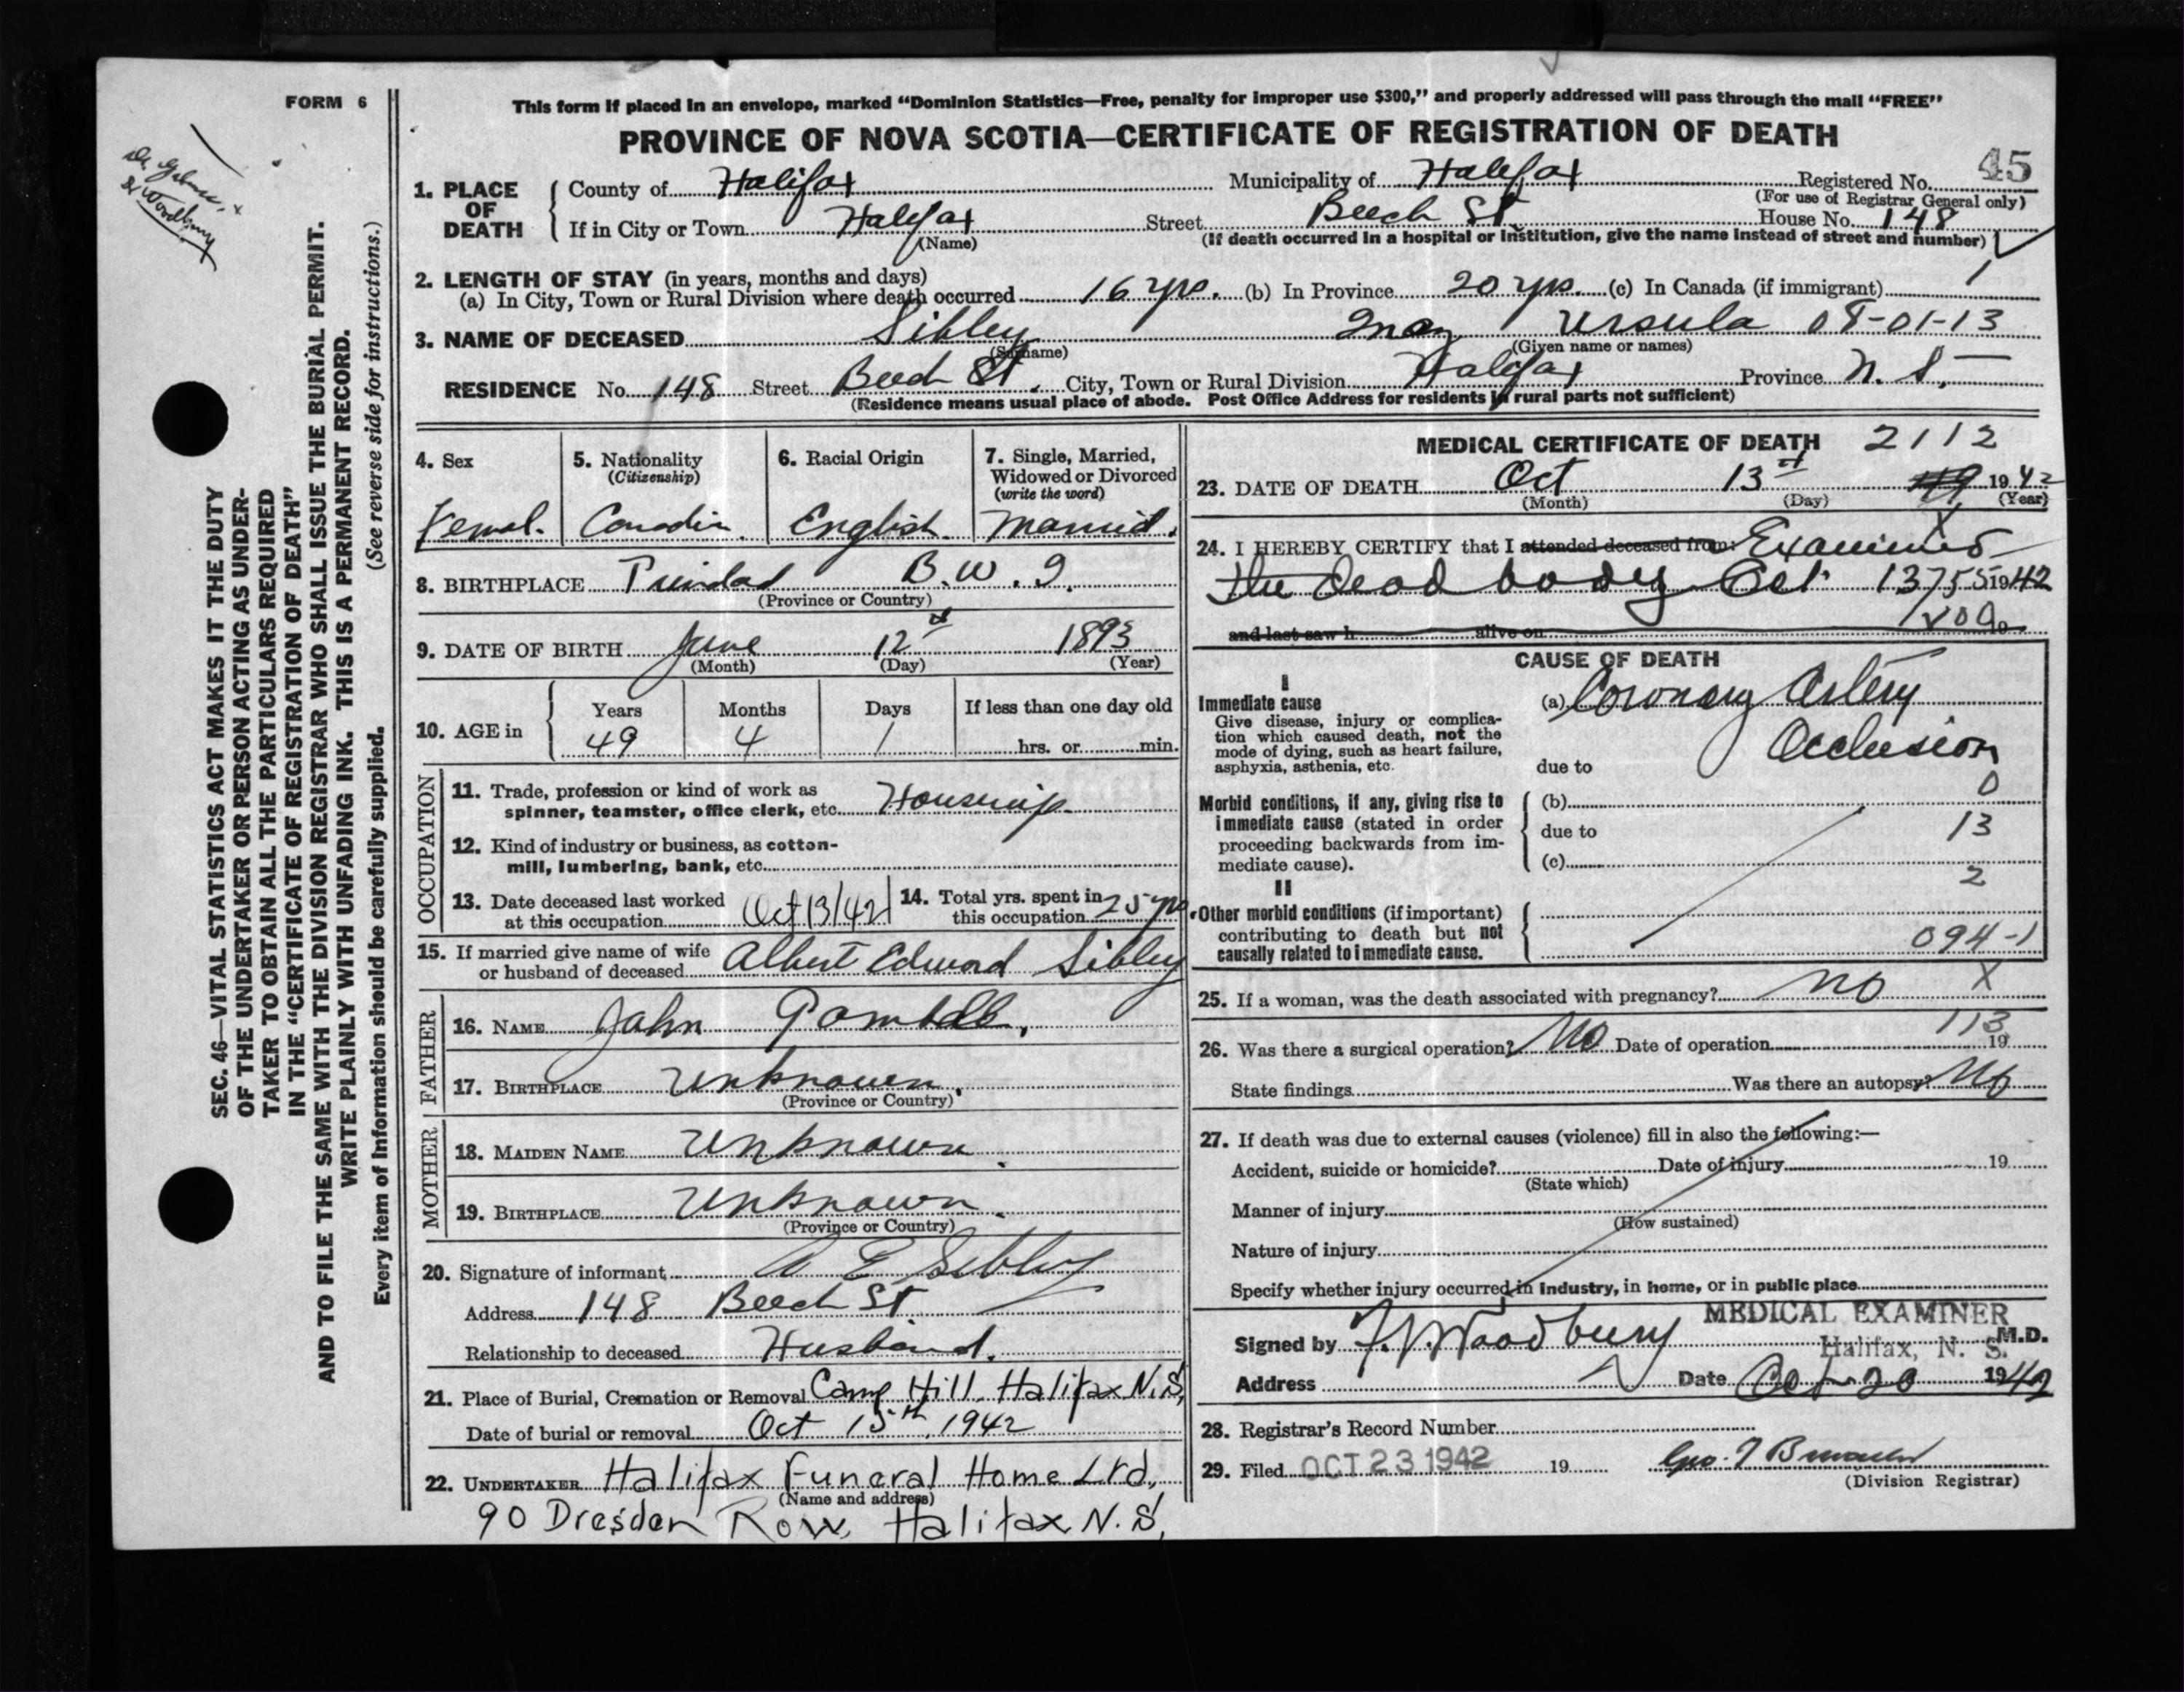 FORM 6
This form if placed in an envelope, marked “Dominion Statistics—Free, penalty for improper use $300,” and properly addressed will pass through the mail “FREE”
PROVINCE OF NOVA SCOTIA—CERTIFICATE OF REGISTRATION OF DEATH
45
1. PLACE OF DEATH County of Halifax Municipality of Halifax Registered No.
(For use of Registrar General only)
If in City or Town Halifax Street Beech St. House No. 148
(Name) (If death occurred in a hospital or institution, give the name instead of street and number)
2. LENGTH OF STAY (in years, months and days)
(a) In City, Town or Rural Division where death occurred 16 yrs. (b) In Province 20 yrs. (c) In Canada (if immigrant)
3. NAME OF DECEASED Sibley May Ursula 08-01-13
(Surname) (Given name or names)
RESIDENCE No. 148 Street Beech St. City, Town or Rural Division Halifax Province N. S.
(Residence means usual place of abode. Post Office Address for residents in rural parts not sufficient)
4. Sex
Femal.
5. Nationality
(Citizenship)
Canadin.
6. Racial Origin
English.
7. Single, Married,
Widowed or Divorced
(write the word)
Married.
8. BIRTHPLACE Trinidad B.W.I.
(Province or Country)
9. DATE OF BIRTH June 12 1893
(Month) (Day) (Year)
10. AGE in Years Months Days If less than one day old
49 4 1 hrs. or min.
OCCUPATION
11. Trade, profession or kind of work as
spinner, teamster, office clerk, etc. Housewife
12. Kind of industry or business, as cotton-
mill, lumbering, bank, etc.
13. Date deceased last worked
at this occupation Oct 13/42
14. Total yrs. spent in
this occupation 25 yrs.
15. If married give name of wife
or husband of deceased Albert Edward Sibley
FATHER
16. NAME John
17. BIRTHPLACE Unknown.
(Province or Country)
MOTHER
18. MAIDEN NAME Unknown.
19. BIRTHPLACE Unknown.
(Province or Country)
20. Signature of informant A E Sibley
Address 148 Beech St
Relationship to deceased Husband.
21. Place of Burial, Cremation or Removal Camp Hill, Halifax N.S,
Date of burial or removal Oct 15th, 1942
22. UNDERTAKER Halifax Funeral Home Ltd,
(Name and address)
90 Dresden Row, Halifax N.S,
MEDICAL CERTIFICATE OF DEATH 2112
23. DATE OF DEATH Oct 13 1942
(Month) (Day) (Year)
24. I HEREBY CERTIFY that I attended deceased from: Examined
the dead body Oct. 13 1942
and last saw h alive on 19
CAUSE OF DEATH
I
Immediate cause
Give disease, injury or complica-
tion which caused death, not the
mode of dying, such as heart failure,
asphyxia, asthenia, etc.
(a) Coronary Artery
Occlusion
due to
0
Morbid conditions, if any, giving rise to
immediate cause (stated in order
proceeding backwards from im-
mediate cause).
(b)
due to 13
(c)
2
II
Other morbid conditions (if important)
contributing to death but not
causally related to immediate cause.
094-1
25. If a woman, was the death associated with pregnancy? no X
113
26. Was there a surgical operation? No Date of operation 19
State findings Was there an autopsy? No
27. If death was due to external causes (violence) fill in also the following:—
Accident, suicide or homicide? Date of injury 19
(State which)
Manner of injury
(How sustained)
Nature of injury
Specify whether injury occurred in industry, in home, or in public place
MEDICAL EXAMINER
Signed by Woodbury M.D.
Halifax, N. S.
Address Date Oct 20 1942
28. Registrar's Record Number
29. Filed OCT 23 1942 19 Geo.
(Division Registrar)
SEC. 46—VITAL STATISTICS ACT MAKES IT THE DUTY
OF THE UNDERTAKER OR PERSON ACTING AS UNDER-
TAKER TO OBTAIN ALL THE PARTICULARS REQUIRED
IN THE “CERTIFICATE OF REGISTRATION OF DEATH”
AND TO FILE THE SAME WITH THE DIVISION REGISTRAR WHO SHALL ISSUE THE BURIAL PERMIT.
WRITE PLAINLY WITH UNFADING INK. THIS IS A PERMANENT RECORD.
Every item of information should be carefully supplied. (See reverse side for instructions.)